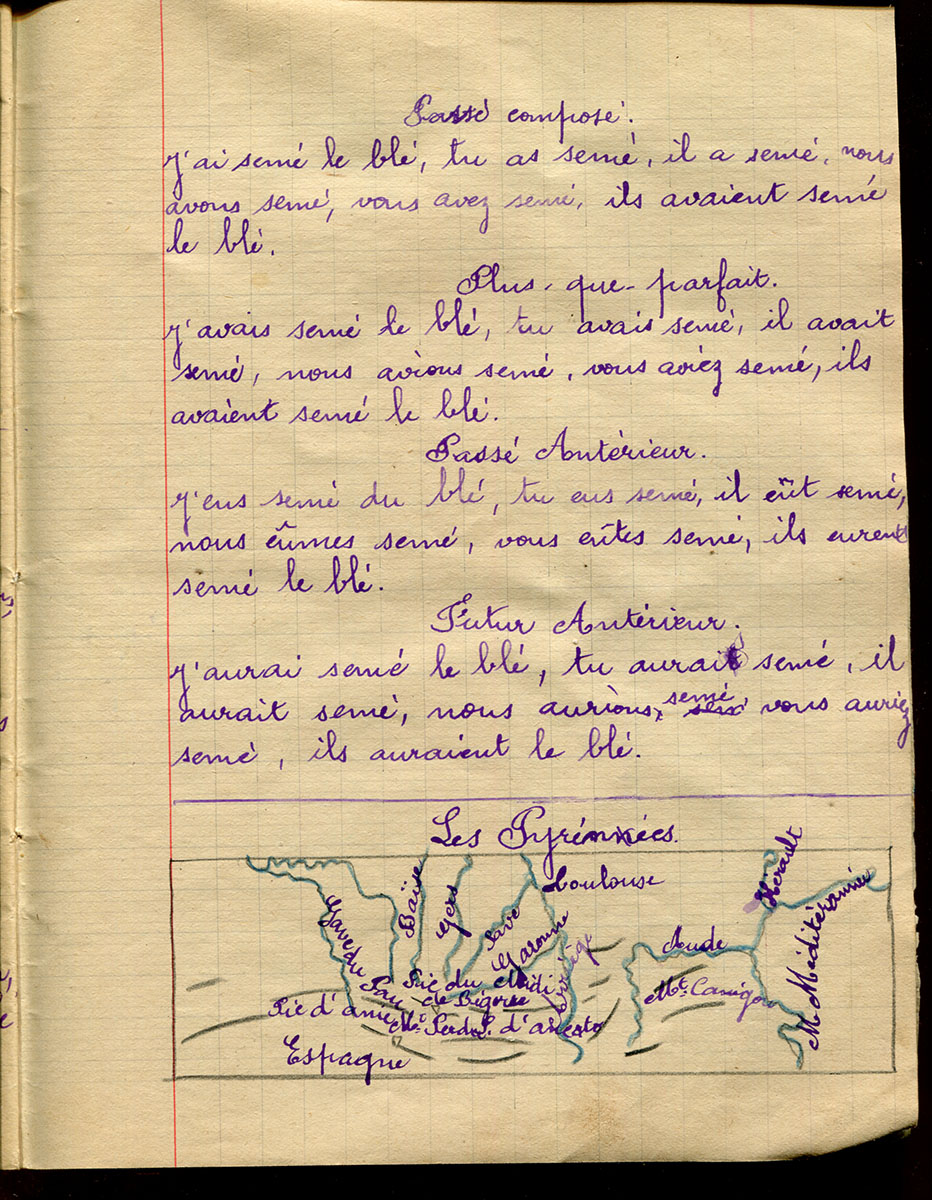 Passé composé.
J'ai semé le blé, tu as semé, il a semé, nous
avons semé, vous avez semé, ils avaient semé
le blé.
Plus-que-parfait.
J'avais semé le blé, tu avais semé, il avait
semé, nous avions semé, vous aviez semé, ils
avaient semé le blé.
Passé Antérieur.
J'eus semé du blé, tu eus semé, il eût semé,
nous eûmes semé, vous eûtes semé, ils eurent
semé le blé.
Futur Antérieur.
J'aurai semé le blé, tu aurais semé, il
aurait semé, nous aurions, semé vous auriez
semé, ils auraient le blé.
Les Pyrénnées.
Hérault
Toulouse
Baïse
Gers
Save
Garonne
Gave du Pau
Ariège
Aude
M Méditéranée
Pic du Midi
de Bigorre
Mt Canigou
Pic d'anie
Mt Perdu
P. d'anéto
Espagne